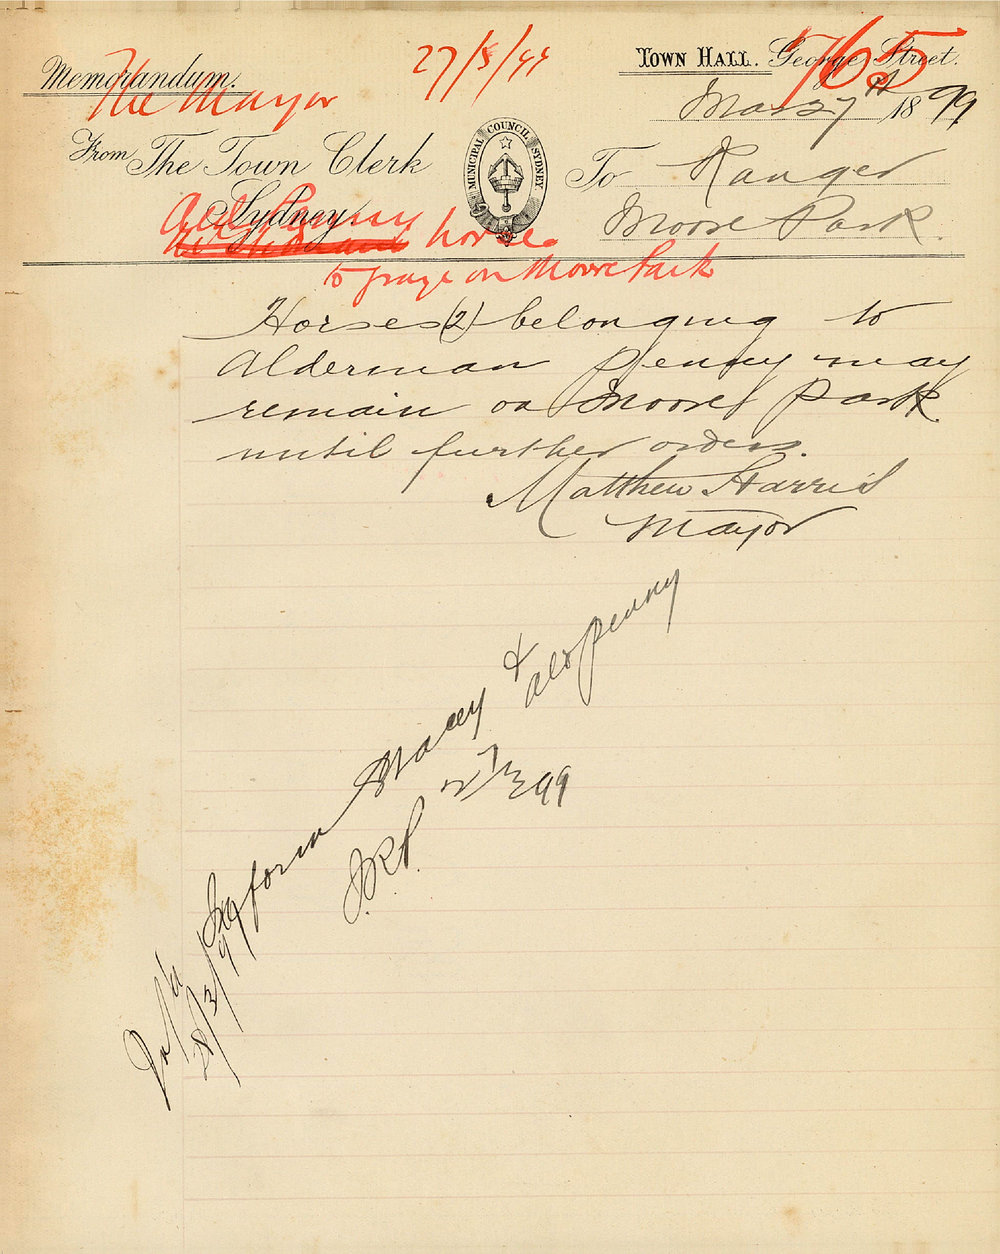 Memorandum.
The Mayor
27/3/99
1765
TOWN HALL. George Street.
Mar 27th 1899
From The Town Clerk
Sydney.
MUNICIPAL COUNCIL SYDNEY
To Ranger
Moore Park.
Ald Penny
horses
to graze on Moore Park
Horses (2) belonging to
Alderman Penny may
remain on Moore Park
until further orders.
Matthew Harris
Mayor
Inform Macey & Ald Penny
27/3/99
Inf'd
28/3/99